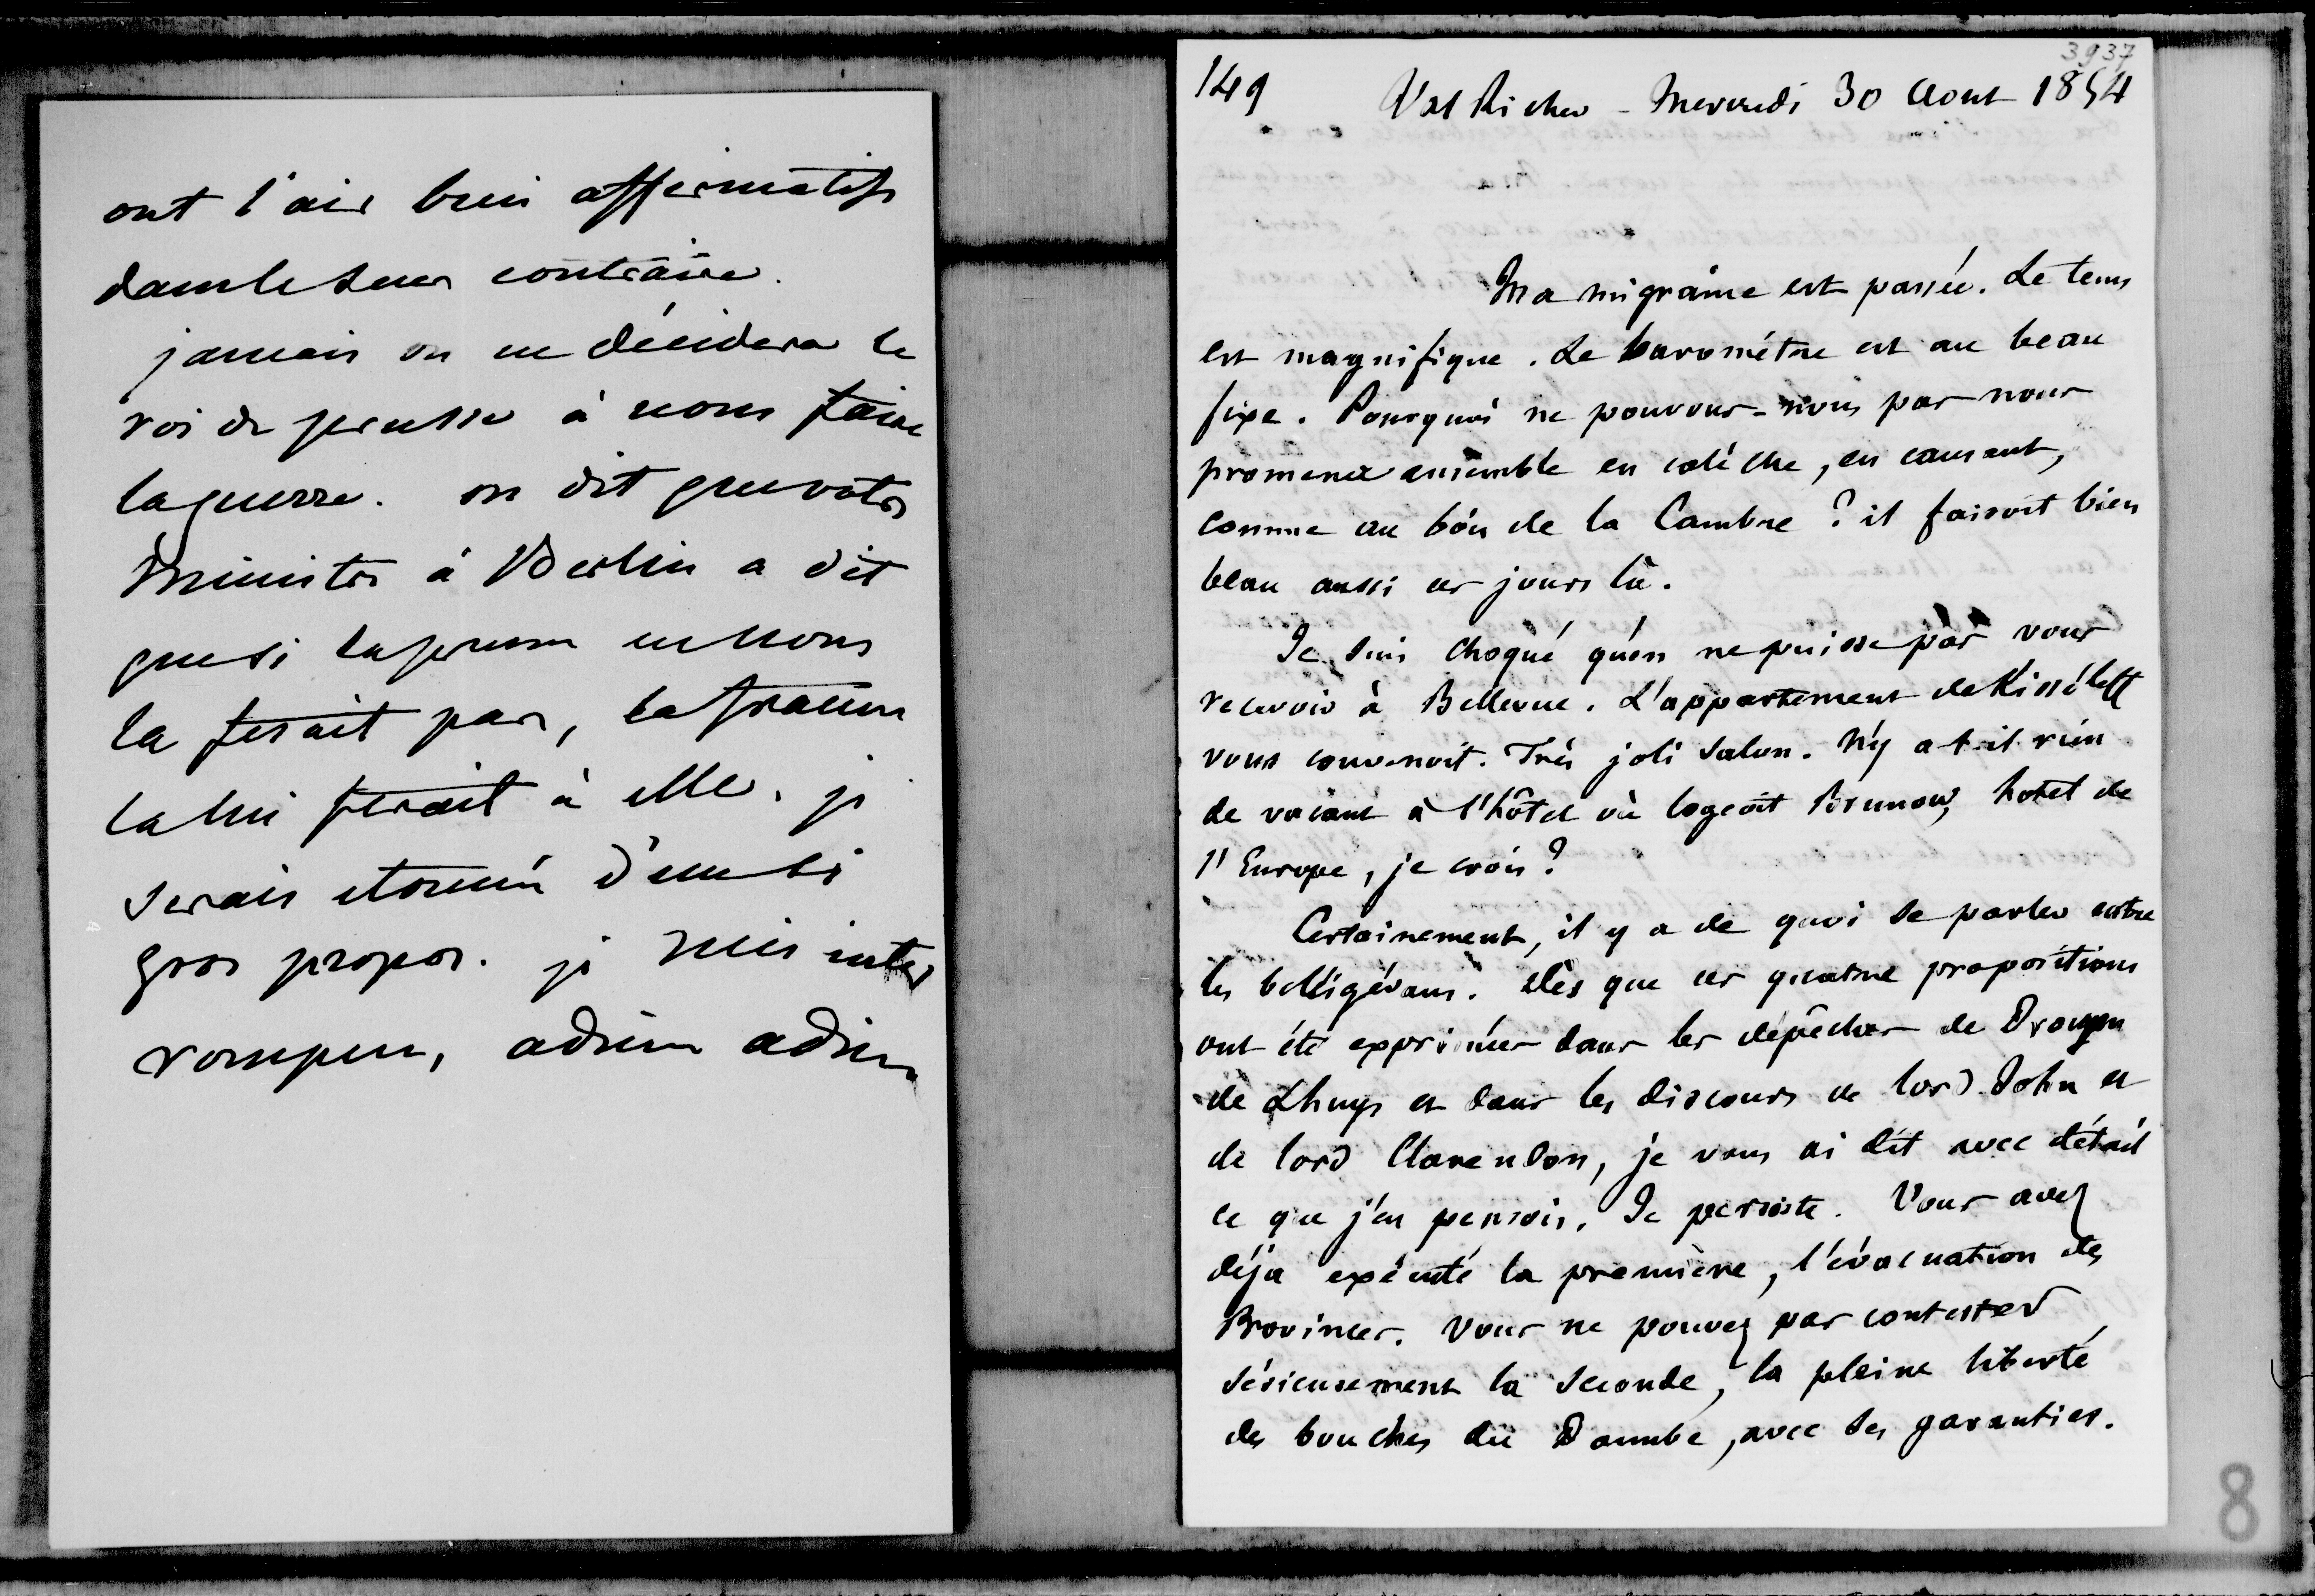 ont l'air bien affirmatifs
dans le sens contraire.
jamais on ne décidera le
roi de prusse à nous faire
la guerre. on dit que votre
Ministre à Berlin a dit
que si la prusse ne nous
la ferait pas, la france
la lui ferait à elle. je
serais etonné d'un si
gros propos. je suis inter
rompue, adieu adieu.
3937
149 Val Richer - Mercredi 30 Aout 1854
Ma migraine est passée. Le tems
est magnifique. Le baromètre est au beau
fixe. Pourquoi ne pouvons-nous pas nous
promener ensemble en calèche, en causant,
comme au bois de la Cambre ? il faisoit bien
beau aussi ces jours là.
Je suis choqué qu'on ne puisse pas vous
recevoir à Bellevue. L'appartement de Kisséleff
vous convenoit. Très joli salon. N'y a-t-il rien
de vacant à l'hôtel où logeoit Brunow, hotel de
l'Europe, je crois ?
Certainement, il y a de quoi se parler entre
les belligérans. Dès que ces quatre propositions
ont été exprimées dans les dépêches de Drouyn
de Lhuys et dans les discours de lord John et
de lord Clarendon, je vous ai dit avec détail
ce que j'en pensois. Je persiste. Vous avez
déja exécuté la première, l'évacuation des
Provinces. Vous ne pouvez pas contester
sérieusement la seconde, la pleine liberté
des bouches du Danube, avec ses garanties.
8